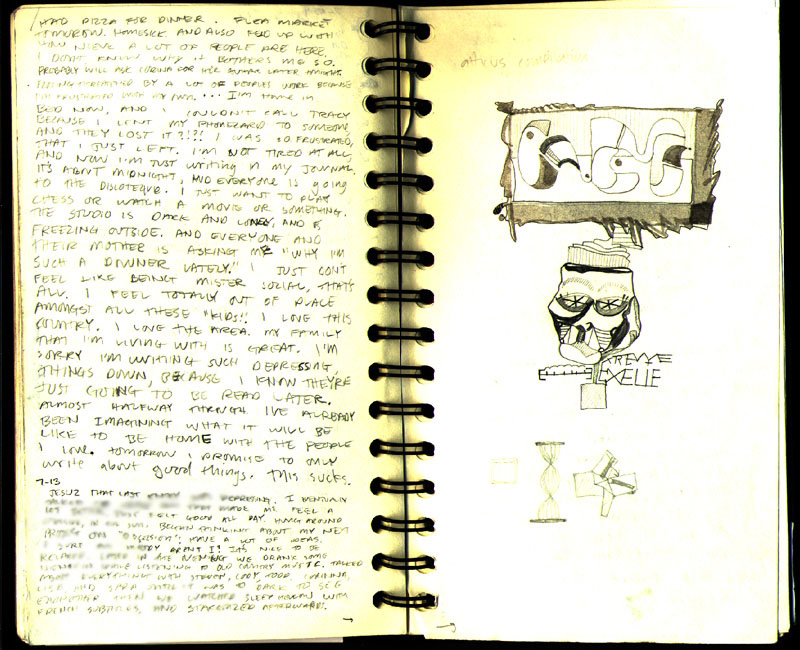 HAD PIZZA FOR DINNER. FLEA MARKET
TOMORROW. HOMESICK AND ALSO FED UP WITH
HOW NIEVE A LOT OF PEOPLE ARE HERE.
I DIDN'T KNOW WHY IT BOTHERS ME SO.
PROBABLY WILL ASK CORINA FOR HER LATER
BY A LOT OF PEOPLES WORK BECAUSE
I'M FRUSTRATED WITH MY OWN... I'M HOME IN
BED NOW, AND I COULDN'T CALL TRACY
BECAUSE I LENT MY PHONECARD TO SOMEONE
AND THEY LOST IT?!?! I WAS SO FRUSTRATED,
THAT I JUST LEFT. I'M NOT TIRED AT ALL,
AND NOW I'M JUST WRITING IN MY JOURNAL.
IT'S ABOUT MIDNIGHT, AND EVERYONE IS going
TO THE DISCOTEQUE. I JUST WANT TO PLAY
CHESS OR WATCH A MOVIE OR SOMETHING.
THE STUDIO IS DARK AND LONELY, AND IS
FREEZING OUTSIDE. AND EVERYONE AND
THEIR MOTHER IS ASKING ME "WHY I'M
SUCH A DOWNER LATELY." I JUST DON'T
FEEL LIKE BEING MISTER SOCIAL, THAT'S
ALL. I FEEL TOTALLY OUT OF PLACE
AMONGST ALL THESE "KIDS!! I LOVE THIS
COUNTRY. I LOVE THE AREA. MY FAMILY
THAT I'M LIVING WITH IS GREAT. I'M
SORRY I'M WRITING SUCH DEPRESSING,
THINGS DOWN, BECAUSE I KNOW THEY'RE
JUST GOING TO BE READ LATER.
ALMOST HALFWAY THROUGH I'VE ALREADY
BEEN IMAGINING WHAT IT WILL BE
LIKE TO BE HOME WITH THE PEOPLE
I LOVE. TOMORROW I PROMISE TO ONLY
write about good things. THIS SUCKS.
7-13
JESUZ THAT LAST ENTRY WAS DEPRESSING. I EVENTUALLY
THAT MADE ME FEEL A
LOT BETTER. JUST FELT GOOD ALL DAY. HUNG AROUND
BEGUN THINKING ABOUT MY NEXT
PROJECT ON "OBSESSION". HAVE A LOT OF IDEAS.
AREN'T I? IT'S NICE TO BE
RELAXED. LATER IN THE EVENING WE DRANK SOME
WHILE LISTENING TO OLD COUNTRY MUSIC. TALKED
ABOUT EVERYTHING WITH STEVEN, CODY, TODD, CORINNA,
LISA AND SARA UNTIL IT WAS TO DARK TO SEE
EACHOTHER. THEN WE WATCHED SLEEPY HOLLOW WITH
FRENCH SUBTITLES, AND STARGAZED AFTERWARDS.